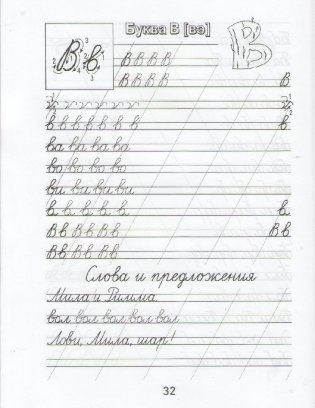 Буква В [вэ]
В в
В В В В
В В В В В
в в в в в в в в
ва ва ва ва
во во во во
ви ви ви ви
в в в в в в
Вв Вв Вв Вв
Вв Вв Вв
Слова и предложения
Мила и Римма.
вол вол вол вол вол
Лови, Мила, шар!
32